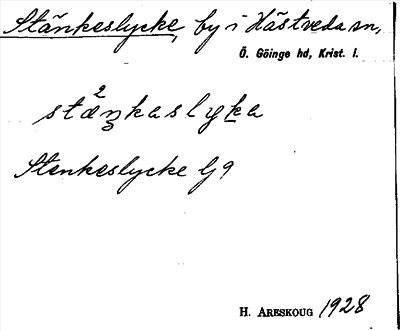 Stänkeslycke, by i Hästveda sn,
Ö. Göinge hd, Krist. l.
2
stæŋkaslyka
Stenkeslycke G 9
H. ARESKOUG 1928